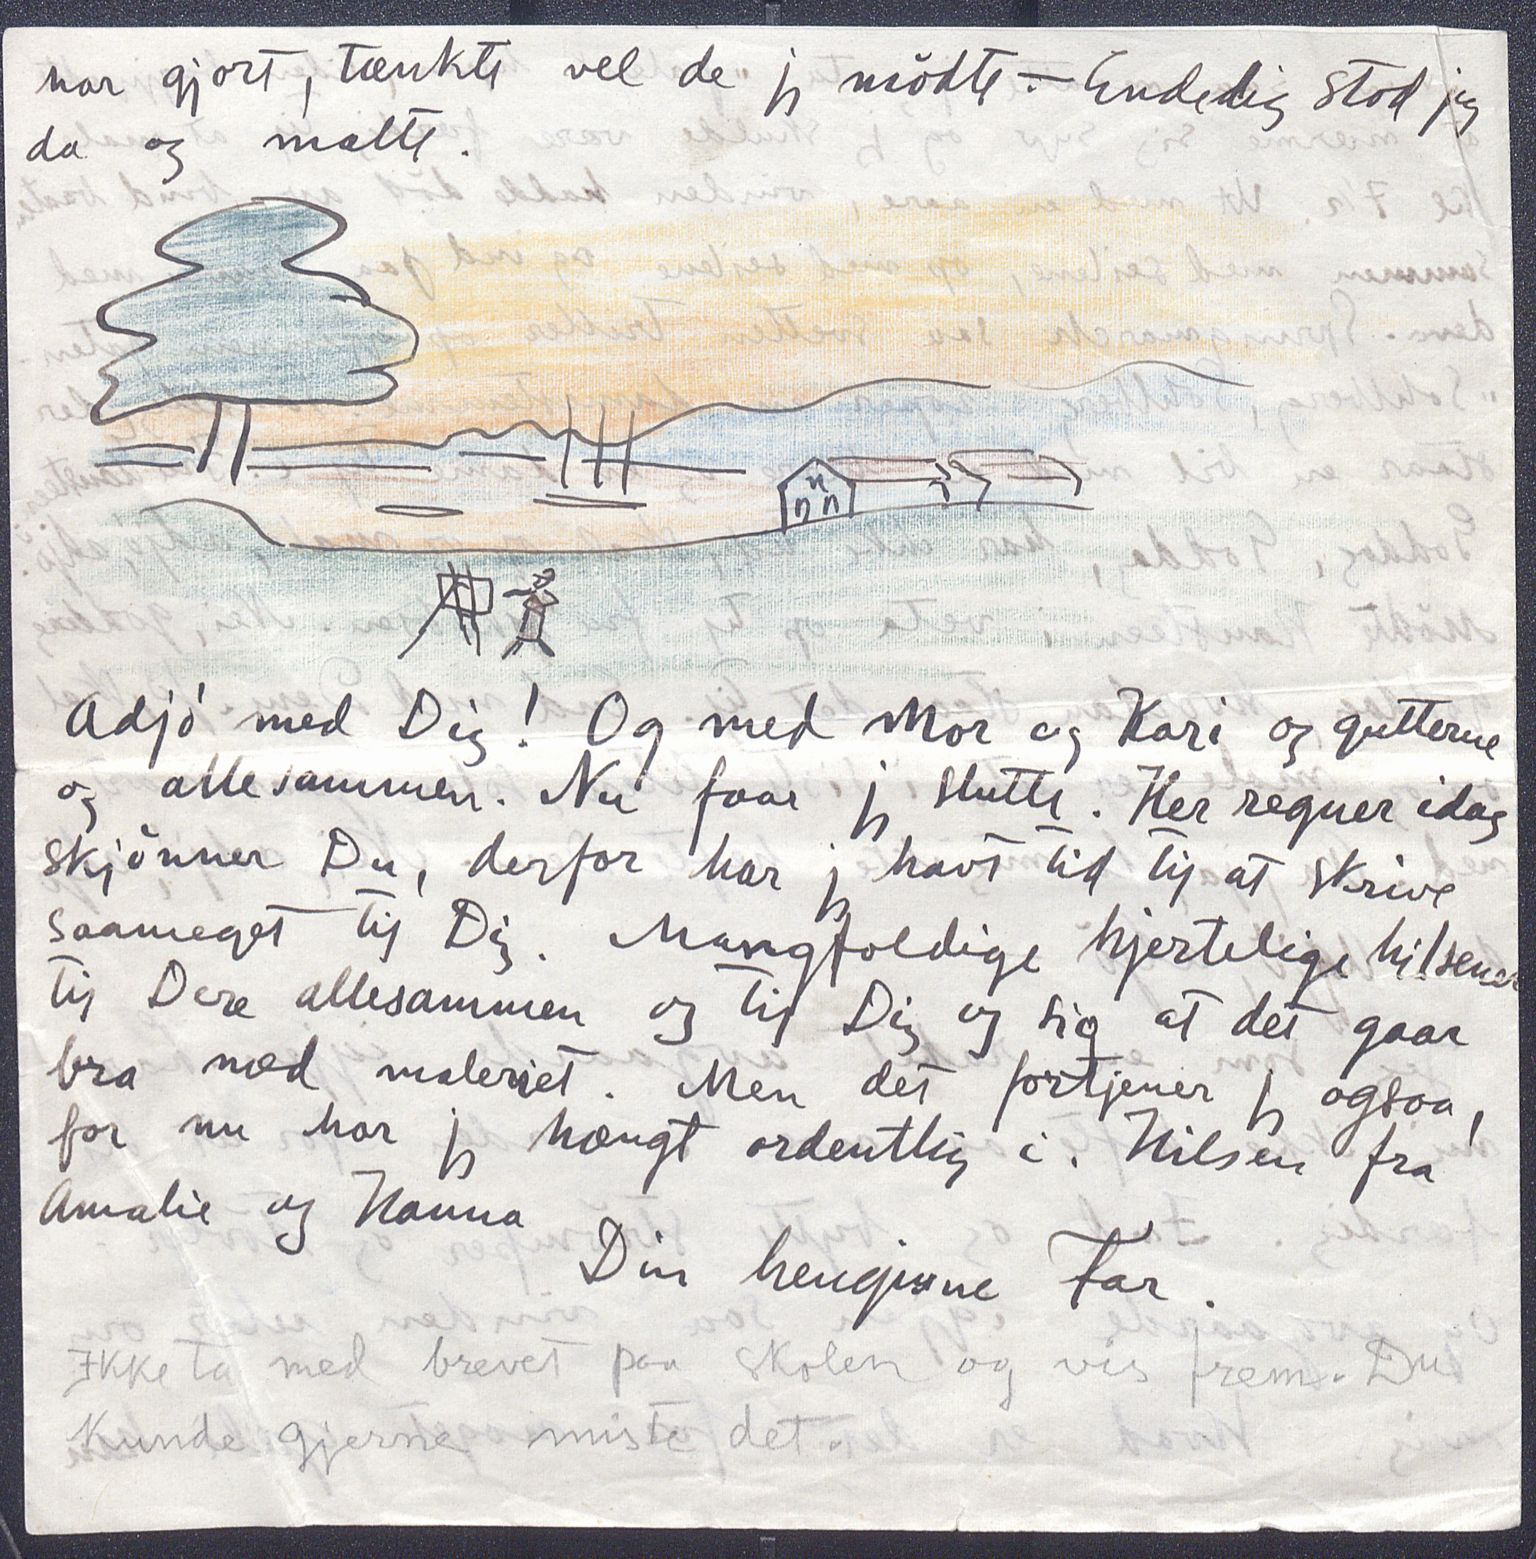 har gjort, tænkte vel de jeg mödte. – Endelig stod jeg
da og malte.
Adjö med Dig! Og med Mor og Kari og gutterne
og allesammen. Nu faar jeg slutte. Her regner idag
skjönner Du, derfor har jeg havt tid til at skrive
saameget til Dig. Mangfoldige hjertelige hilsener
til Dere allesammen og til Dig og sig at det gaar
bra med maleriet. Men det fortjener jeg ogsaa,
for nu har jeg hængt ordentlig i. Hilsen fra
Amalie og Hanna
Din hengivne Far.
Ikke ta med brevet paa skolen og vis frem. Du
kunde gjerne miste det.